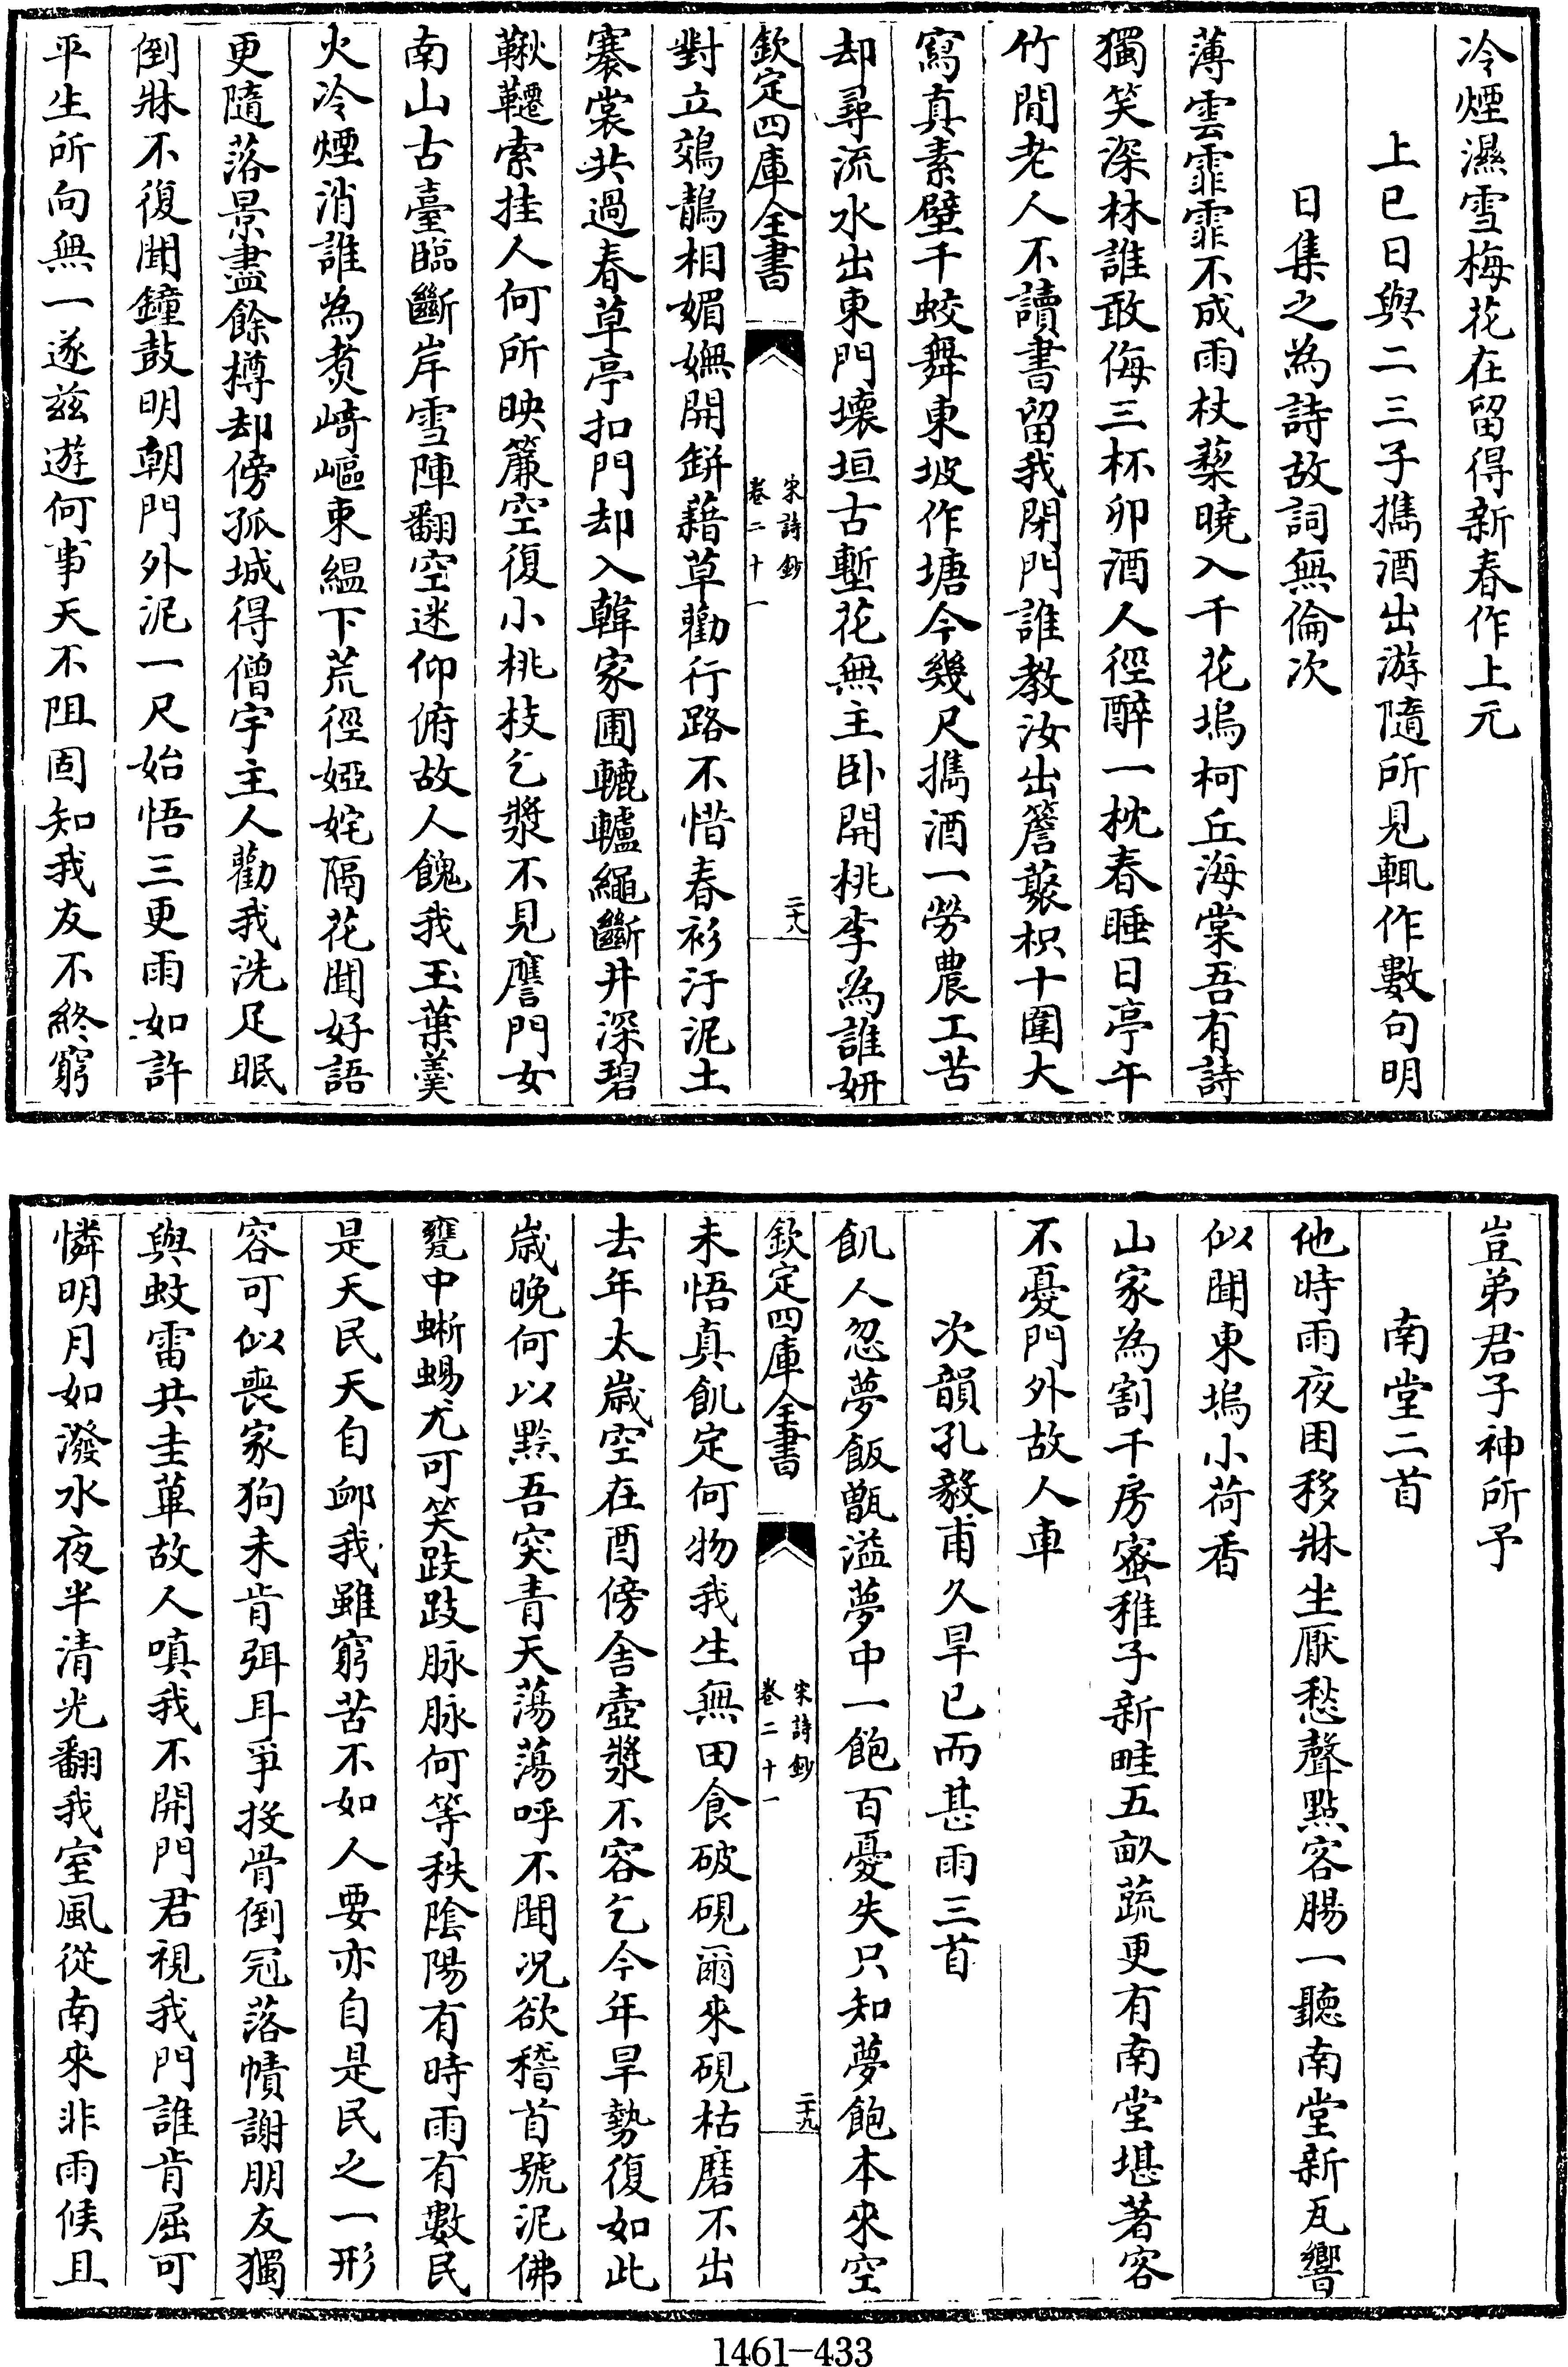 冷煙濕雪梅花在留得新春作上元
上巳日與二三子攜酒出游隨所見輒作數句明
日集之為詩故詞無倫次
薄雲霏霏不成雨杖藜曉入千花塢柯丘海棠吾有詩
獨笑深林誰敢侮三杯卯酒人徑醉一枕春睡日亭午
竹間老人不讀書留我閉門誰教汝出簷蘩枳十圍大
寫真素壁千蛟舞東坡作塘今幾尺攜酒一勞農工苦
却尋流水出東門壞垣古塹花無主卧開桃李為誰妍
欽定四庫全書
宋詩鈔
卷二十一
二十八
對立鵁鶄相媚嫵開缾藉草勸行路不惜春衫汙泥土
褰裳共過春草亭扣門却入韓家圃轆轤繩斷井深碧
鞦韆索挂人何所映簾空復小桃枝乞漿不見應門女
南山古臺臨斷岸雪陣翻空迷仰俯故人餽我玉葉羹
火冷煙消誰為煑崎嶇東緼下荒徑婭姹隔花聞好語
更隨落景盡餘樽却傍孤城得僧宇主人勸我洗足眠
倒牀不復聞鐘鼓明朝門外泥一尺始悟三更雨如許
平生所向無一遂兹遊何事天不阻固知我友不終窮
豈弟君子神所予
南堂二首
他時雨夜困移牀坐厭愁聲點客腸一聽南堂新瓦響
似聞東塢小荷香
山家為割千房蜜稚子新畦五畝蔬更有南堂堪著客
不憂門外故人車
次韻孔毅甫久旱已而甚雨三首
飢人忽夢飯甑溢夢中一飽百憂失只知夢飽本來空
欽定四庫全書
宋詩鈔
卷二十一
二十九
未悟真飢定何物我生無田食破硯爾來硯枯磨不出
去年太歲空在酉傍舍壺漿不容乞今年旱勢復如此
歲晚何以黔吾突青天蕩蕩呼不聞况欲稽首號泥佛
甕中蜥蜴尤可笑跂跂脉脉何等秩陰陽有時雨有數民
是天民天自䘏我雖窮苦不如人要亦自是民之一形
容可似喪家狗未肯弭耳爭投骨倒冠落幘謝朋友獨
與蚊雷共圭蓽故人嗔我不開門君視我門誰肯屈可
憐明月如潑水夜半清光翻我室風從南來非雨候且
1461-433